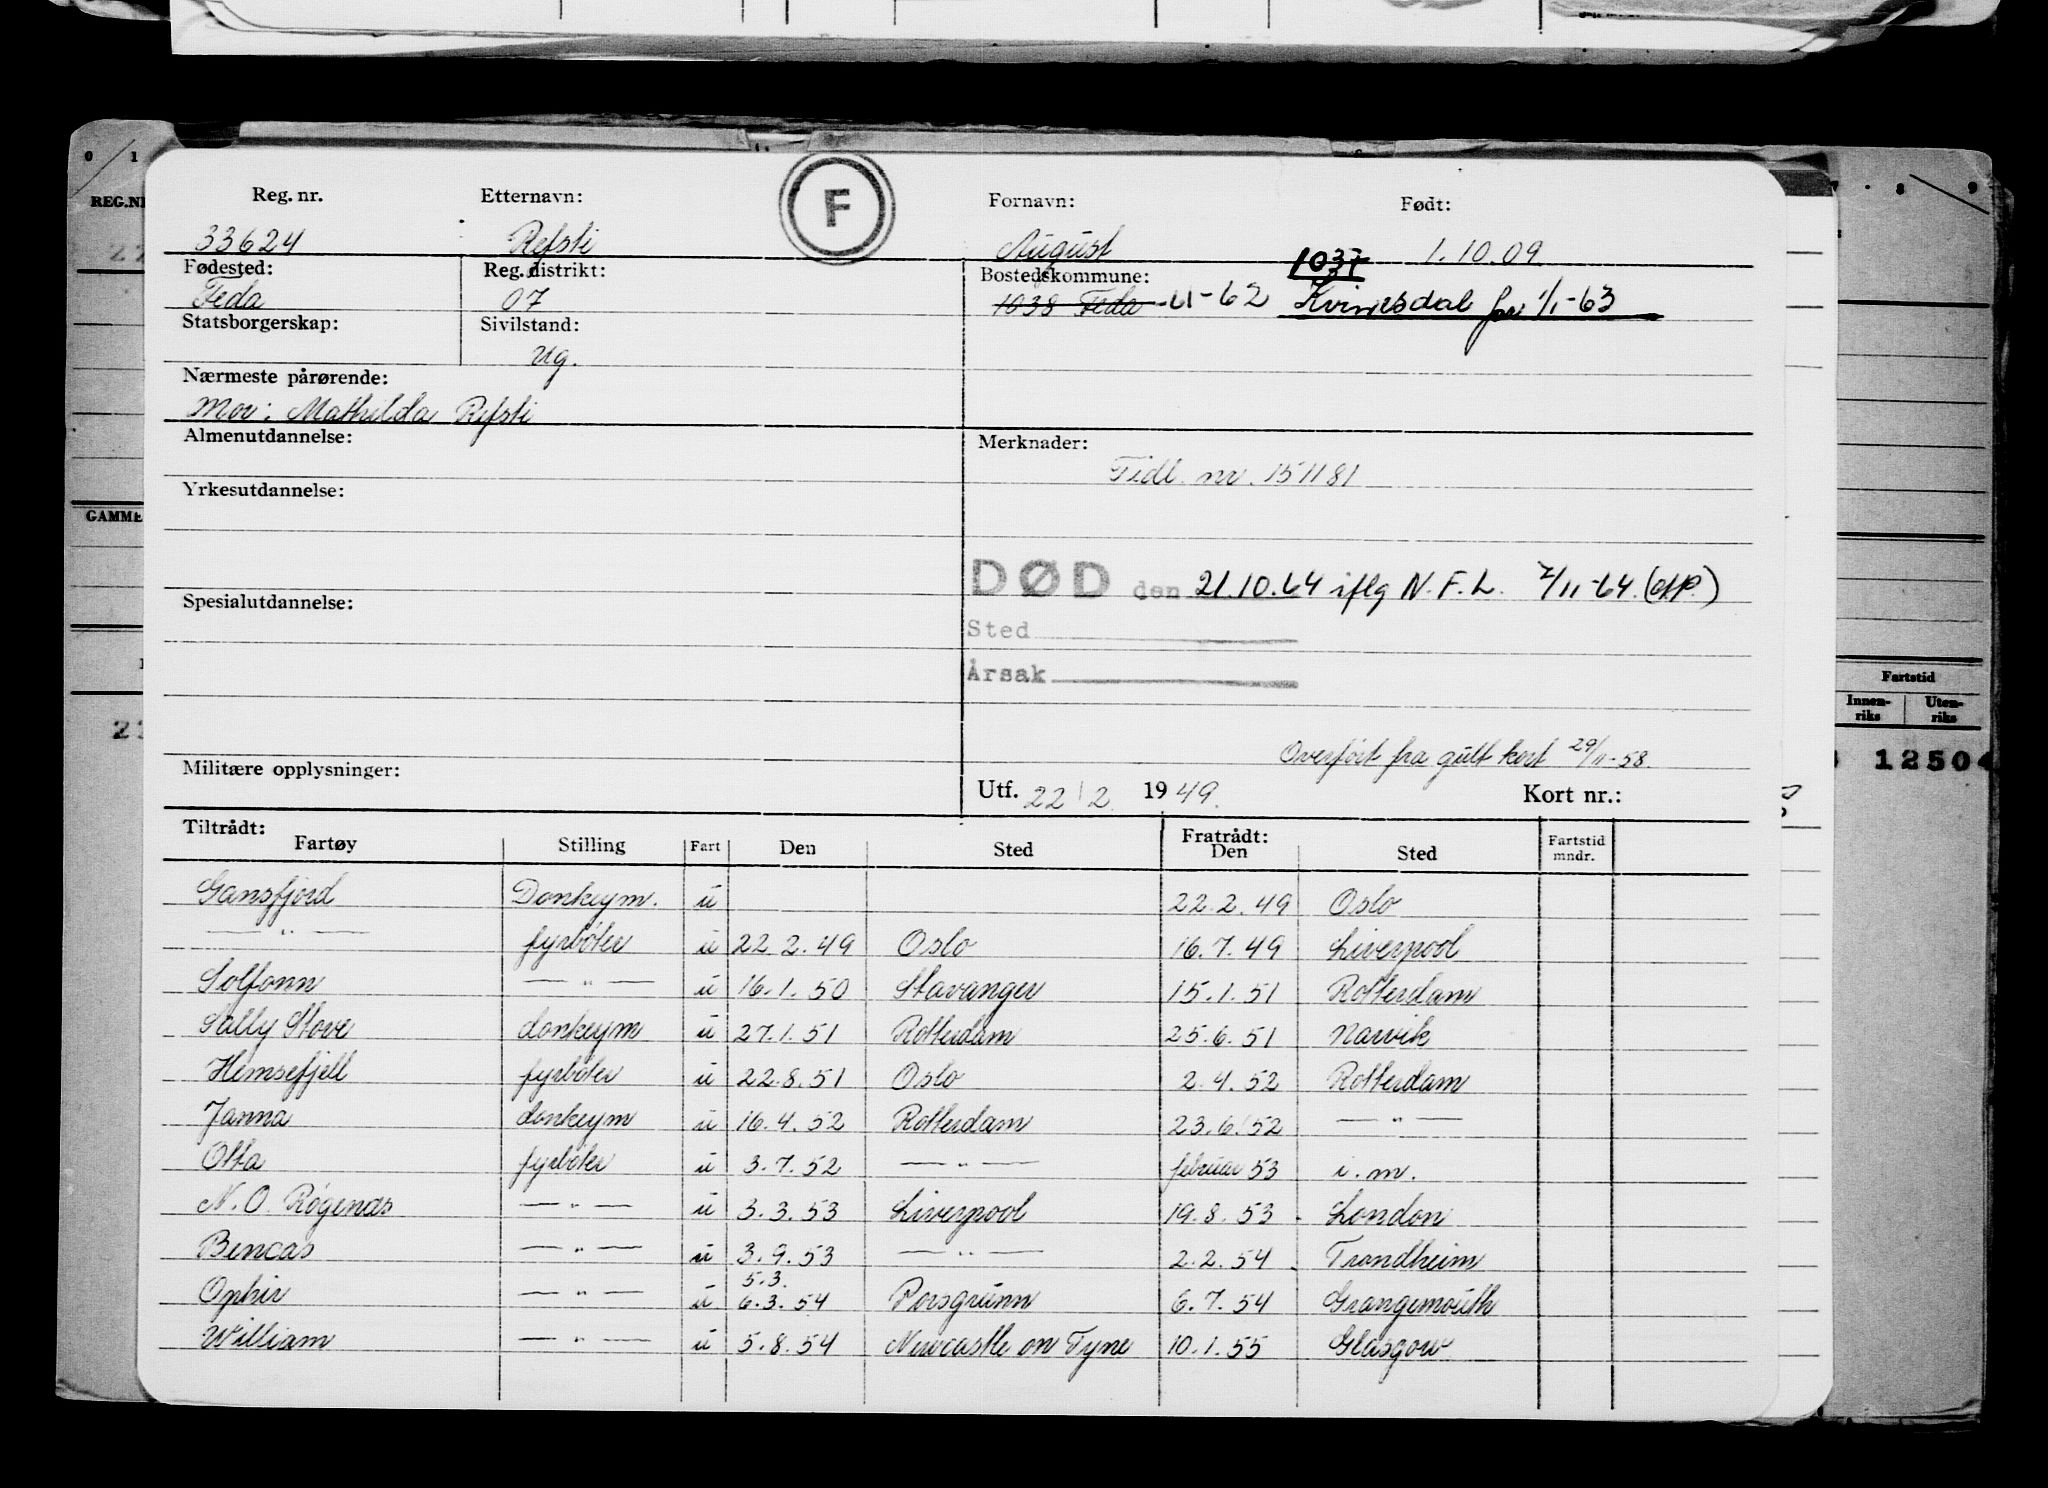 0 / 1
REG.NR
GAMME
7 . 8 / 9
Fartstid
Innen-riks Uten-riks
12504
F
Reg. nr. Etternavn: Fornavn: Født:
33624 Refsti August 1.10.09
Fødested: Reg. distrikt: Bostedskommune: 1037
Feda 07 1038 Feda -ll-62 Kvinesdal fra 1/1-63
Statsborgerskap: Sivilstand:
ug.
Nærmeste pårørende:
Mor: Mathilda Refsti
Almenutdannelse: Merknader:
Tidl. nr. 151181
Yrkesutdannelse:
DØD den 21.10.64 iflg N.F.L. 2/11-64.
Spesialutdannelse:
Sted
Årsak
Overført fra gult kort 29/11-58.
Militære opplysninger: Utf. 22/2 1949. Kort nr.:
Tiltrådt: Fratrådt:
Fartøy Stilling Fart Den Sted Den Sted Fartstid mndr.
Gansfjord Donkeym. u 22.2.49 Oslo
— " — fyrbøter u 22.2.49 Oslo 16.7.49 Liverpool
Solfonn — " — u 16.1.50 Stavanger 15.1.51 Rotterdam
Sally Stove donkeym u 27.1.51 Rotterdam 25.6.51 Narvik
Hemsefjell fyrbøter u 22.8.51 Oslo 2.4.52 Rotterdam
Janna donkeym u 16.4.52 Rotterdam 23.6.52 — " —
Otta fyrbøter u 3.7.52 — " — februar 53 i.m.
N.O. Røgenæs — " — u 3.3.53 Liverpool 19.8.53 London
Bencas — " — u 3.9.53 — " — 2.2.54 Trondheim
5.3.
Ophir — " — u 6.3.54 Porsgrunn 6.7.54 Grangemouth
William — " — u 5.8.54 Newcastle on Tyne 10.1.55 Glasgow